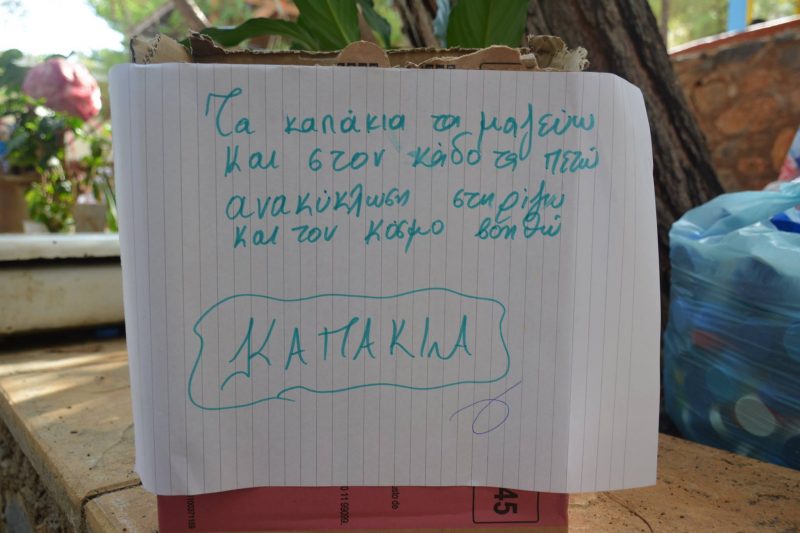 Τα καπάκια τα μαζεύω
Και στον κάδο τα πετώ
ανακύκλωση στηρίζω
και τον κόσμο βοηθώ
ΚΑΠΑΚΙΑ
45
0 11 99099.
10037169